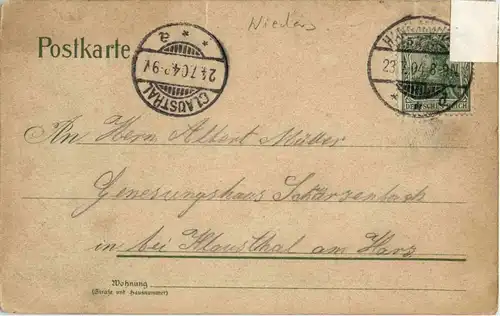 Postkarte
CLAUSTHAL
24.7.04.8-9V
* a *
DEUTSCHES REICH
An Herrn Albert Müller
Genesungshaus Schwarzenbach
in bei Klausthal am Harz
Wohnung
(Straße und Hausnummer)